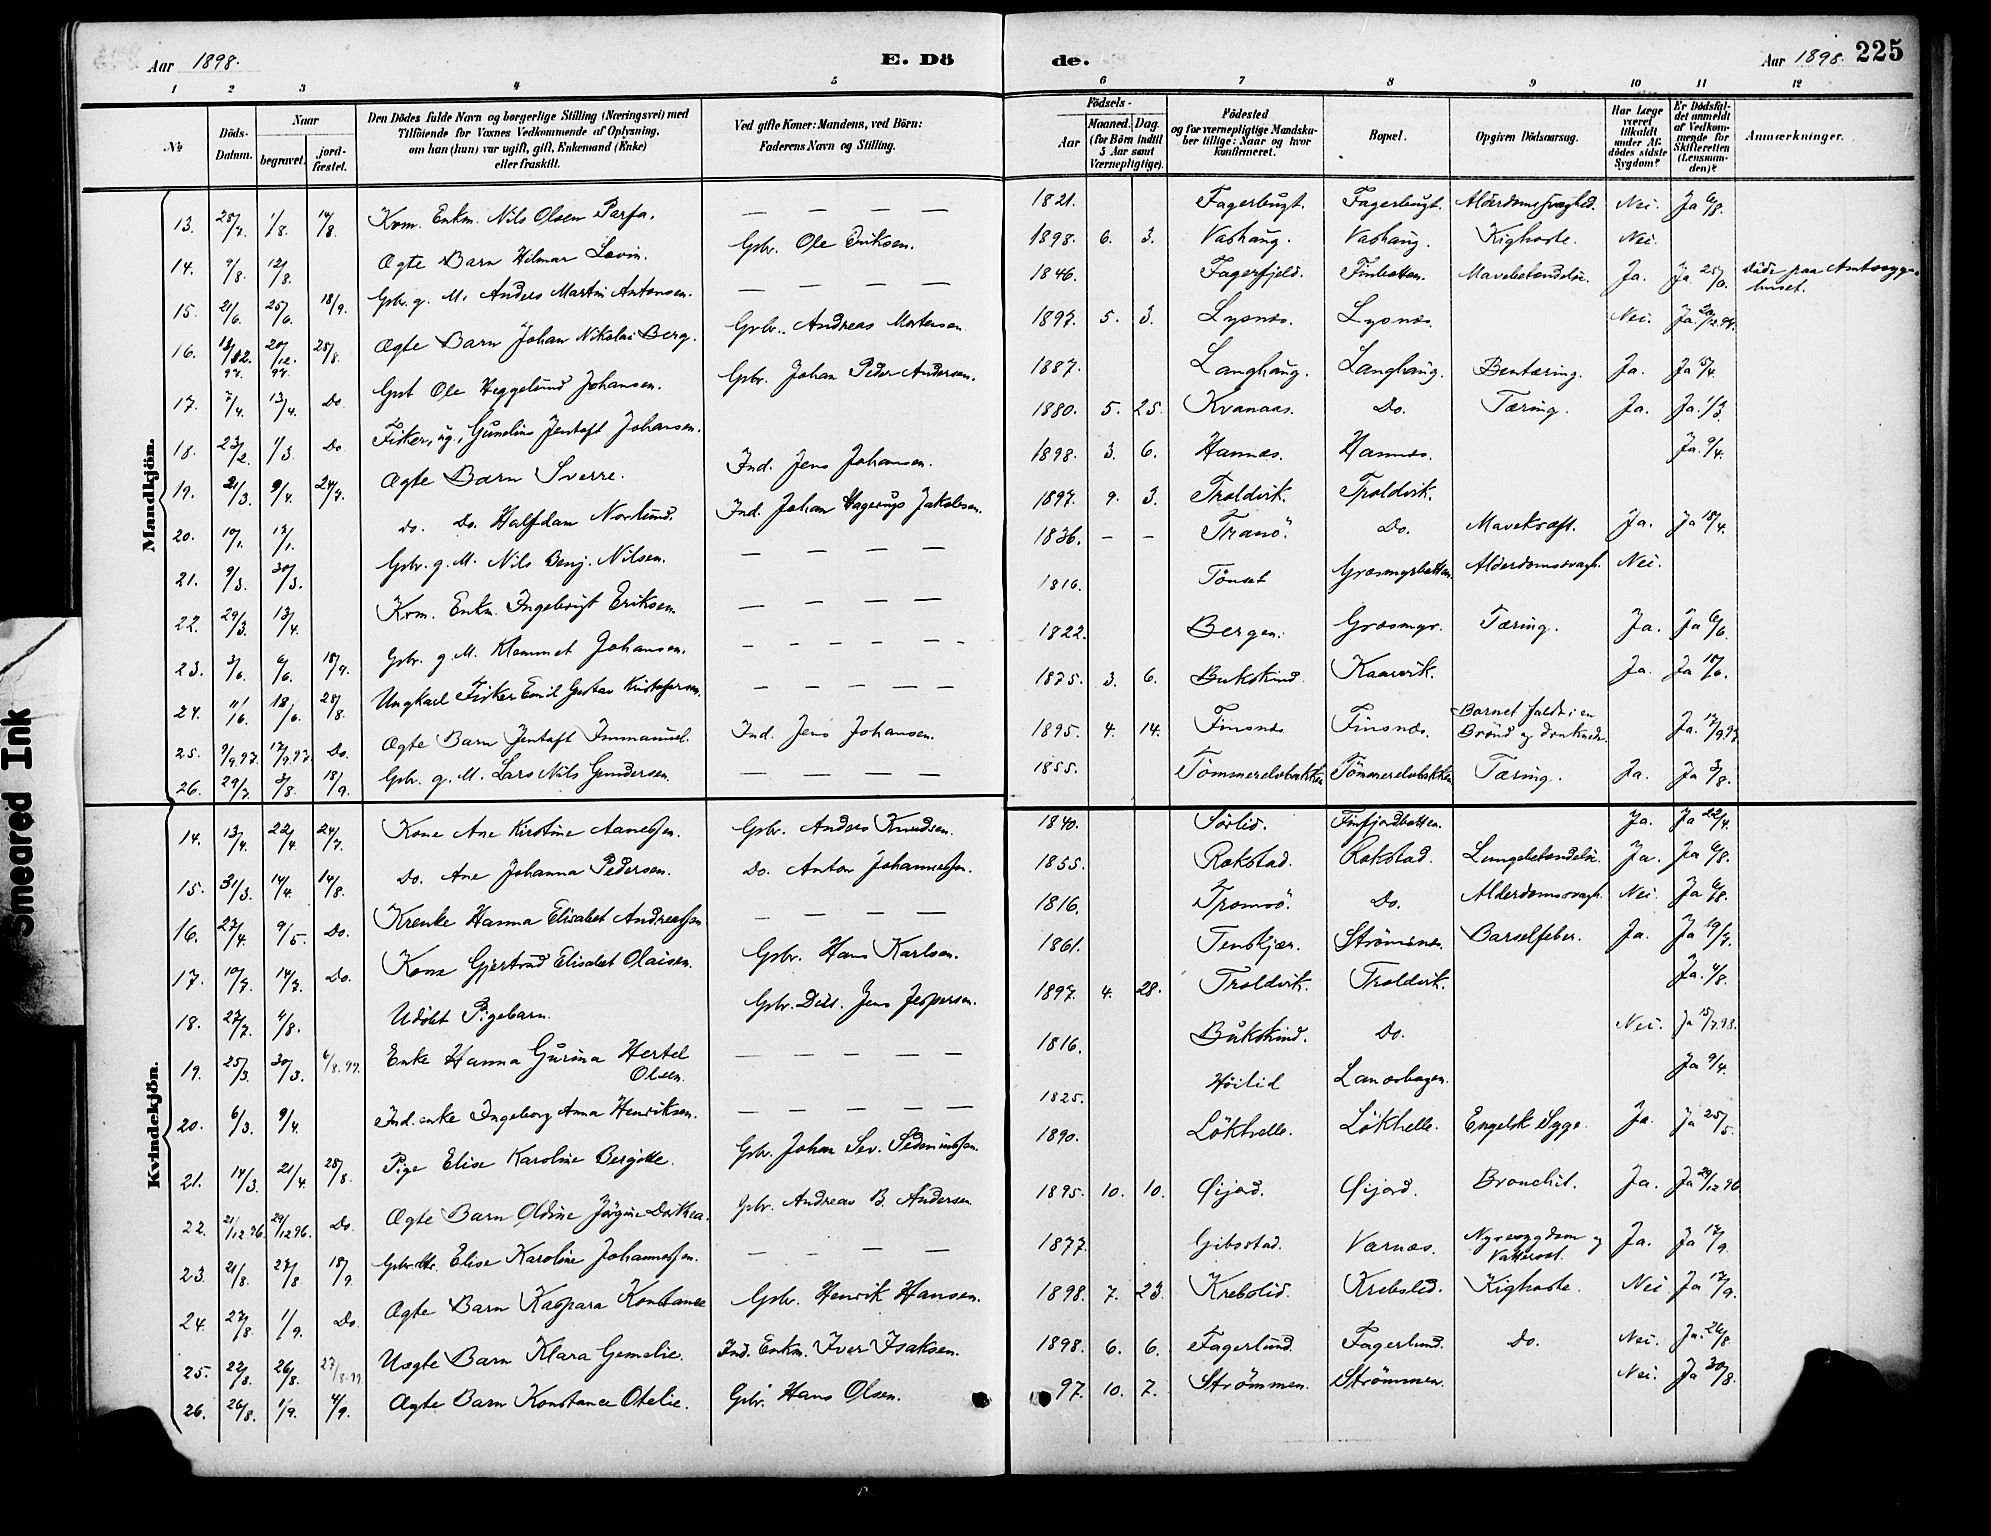 Aar 1898.
E. Dö
de.
Aar 1898. 225
1 2 3 4 5 6 7 8 9 10 11 12
No
Döds-Datum.
Naar
begravet. jord-fæstet.
Den Dödes fulde Navn og borgerlige Stilling (Næringsvei) med
Tilföiende for Voxnes Vedkommende af Oplysning,
om han (hun) var ugift, gift, Enkemand (Enke)
eller fraskilt.
Ved gifte Koner: Mandens, ved Börn:
Faderens Navn og Stilling.
Födsels-
Aar Maaned. Dag.
(for Börn indtil
5 Aar samt
Værnepligtige).
Födested
og for værnepligtige Mandska-
ber tillige: Naar og hvor
konfirmeret.
Bopæl.
Opgiven Dödsaarsag.
Har Læge
været
tilkaldt
under Af-
dödes sidste
Sygdom?
Er Dödsfal-
det anmeldt
af Vedkom-
mende for
Skifteretten
(Lensman-
den)?
Anmærkninger.
Mandkjön.
13. 28/7. 1/8. 14/8. Kvm. Enkm. Nils Olsen Parfa. — — — — 1821. Fagerbugt. Fagerbugt. Alderdomssvaghed. Nei. Ja 6/8.
14. 9/8. 12/8. Ægte Barn Hilmar Lovin. Gbr. Ole Eriksen. 1898. 6. 3. Vashaug. Vashaug. Kighoste. Nei.
15. 21/6. 25/6. 18/9. Gbr. g. M. Anders Martin Antonsen. — — — — 1846. Fagerfjeld. Finbotten. Mavebetændelse. Ja. Ja 25/6. Døde paa Amtssyge-
huset.
16. 18/12. 97. 20/12. 97. 28/8. Ægte Barn Johan Nikolai Berg. Gbr. Andreas Mortensen. 1897. 5. 3. Lysnæs. Lysnæs. Nei. Ja. 20/12.97.
17. 7/4. 13/4. Do. Ole Heggelund Johansen. Gbr. Johan Peder Andersen. 1887. Langhaug. Langhaug. Bentæring. Ja. Ja 15/4.
18. 23/2. 1/3. Do Fisker, ug., Gunelius Jentoft Johansen. 1880. 5. 25. Kvanaas. Do. Tæring. Ja. Ja. 1/3.
19. 21/3. 9/4. 24/7. Ægte Barn Sverre. Ind. Jens Johansen. 1898. 3. 6. Hannæs. Hannæs. Ja. 9/4.
20. 10/1. 17/1. do. Do. Halfdan Norlund. Ind. Johan Hagerup Jakobsen. 1897. 9. 3. Troldvik. Troldvik.
21. 9/3. 30/3. Gbr. g. M. Nils Benj. Nilsen. — — — — 1836. — — Tranö. Do. Mavekræft. Ja. Ja 18/4.
22. 29/3. 13/4. Kvm. Enkm. Ingebrigt Eriksen — — — — 1816. Tönset Græsmyrbotten. Alderdomssvagh. Nei.
23. 3/6. 6/6. 18/9. Gbr. g. M. Klemmet Johansen. — — — — 1822. Bergen. Græsmyr. Tæring. Ja. Ja 6/6.
24. 11/6. 18/6. 28/8. Ungkarl Fisker Emil Gustav Kristofersen. — — — — 1875. 3. 6. Bukskind. Kaarvik. Ja. Ja 18/6.
25. 9/9.97. 17/9.97. Do. Ægte Barn Jentoft Immanuel. Ind. Jens Johansen. 1895. 4. 14. Finsnæs. Finsnæs. Barnet faldt i en
Brønd og druknede. Ja. 17/9.97.
26. 29/7. 3/8. 18/9. Gbr. g. M. Lars Nils Gundersen. — — — — 1855. Tömmerelvbakken Tömmerelvbakken Tæring. Ja. Ja 3/8.
Kvindekjön.
14. 13/4. 22/4. 24/7. Kone Ane Kirstine Aanessen. Gbr. Anders Knudsen. 1840. Sörlid. Finfjordbotten. Ja. Ja 22/4.
15. 31/3. 14/4. 14/8. Do. Ane Johanna Pedersen. Do. Anton Johannessen. 1855. Rokstad. Rokstad. Lungebetændelse. Ja. Ja 6/8.
16. 27/4. 9/5. Do. Hanna Elisabet Andreassen — — — — 1816. Tromsö. Do. Alderdomssvagh. Nei. Ja 6/8.
17. 10/7. 14/7. Do. Kone Gjertrud Elisabet Olaisen. Gbr. Hans Karlsen. 1861. Tenskjær. Strömsnes. Barselfeber. Ja. Ja 19/7.
18. 27/7. 4/8. Udöbt Pigebarn. Gbr. Jens Jespersen. 1897. 4. 28. Troldvik. Troldvik. Ja. 4/8.
19. 25/3. 30/3. 6/8.99. Enke Hanna Gurina Hertel
Olsen. — — — — 1816. Bukskind. Do. Nei. Ja 15/7.98.
20. 6/3. 9/4. Ind. enke Ingeborg Anna Henriksen. — — — — 1825. Höilid Lanesbogen. Ja 9/4.
21. 14/3. 21/4. 28/8. Pige Elise Karoline Bergitte. Gbr. Johan Sev. 1890. Lökhelle. Lökhelle. Engelsk Syge. Ja. Ja 25/5.
22. 21/12 96. 29/12 96. Do. Ægte Barn Oldine Jörgine Dorthea. Gbr. Andreas B. Andersen 1895. 10. 10. Øijord. Øijord. Bronchit. Ja. Ja 29/12 96
23. 21/8. 27/8 18/9. Elise Karoline Johannessen. — — — — 1877. Gibostad. Værnæs. Nyresygdom og
Vattersot. Ja. Ja 17/9.
24. 27/8. 1/9. Do. Ægte Barn Kaspara Konstance Gbr. Henrik Hansen. 1898. 7. 23. Krebslid. Krebslid. Kighoste. Nei. Ja 17/9.
25. 22/8. 26/8. 27/8.99. Uægte Barn Klara Gemelie. Ind. Enkm. Iver Isaksen. 1898. 6. 6. Fagerlund. Fagerlund. Do. Nei. Ja. 26/8
26. 26/8. 1/9. 4/9. Ægte Barn Konstance Otelie. Gbr. Hans Olsen. 97. 10. 7. Strömmen. Strömmen. Nei. Ja 30/8.
Smeared Ink